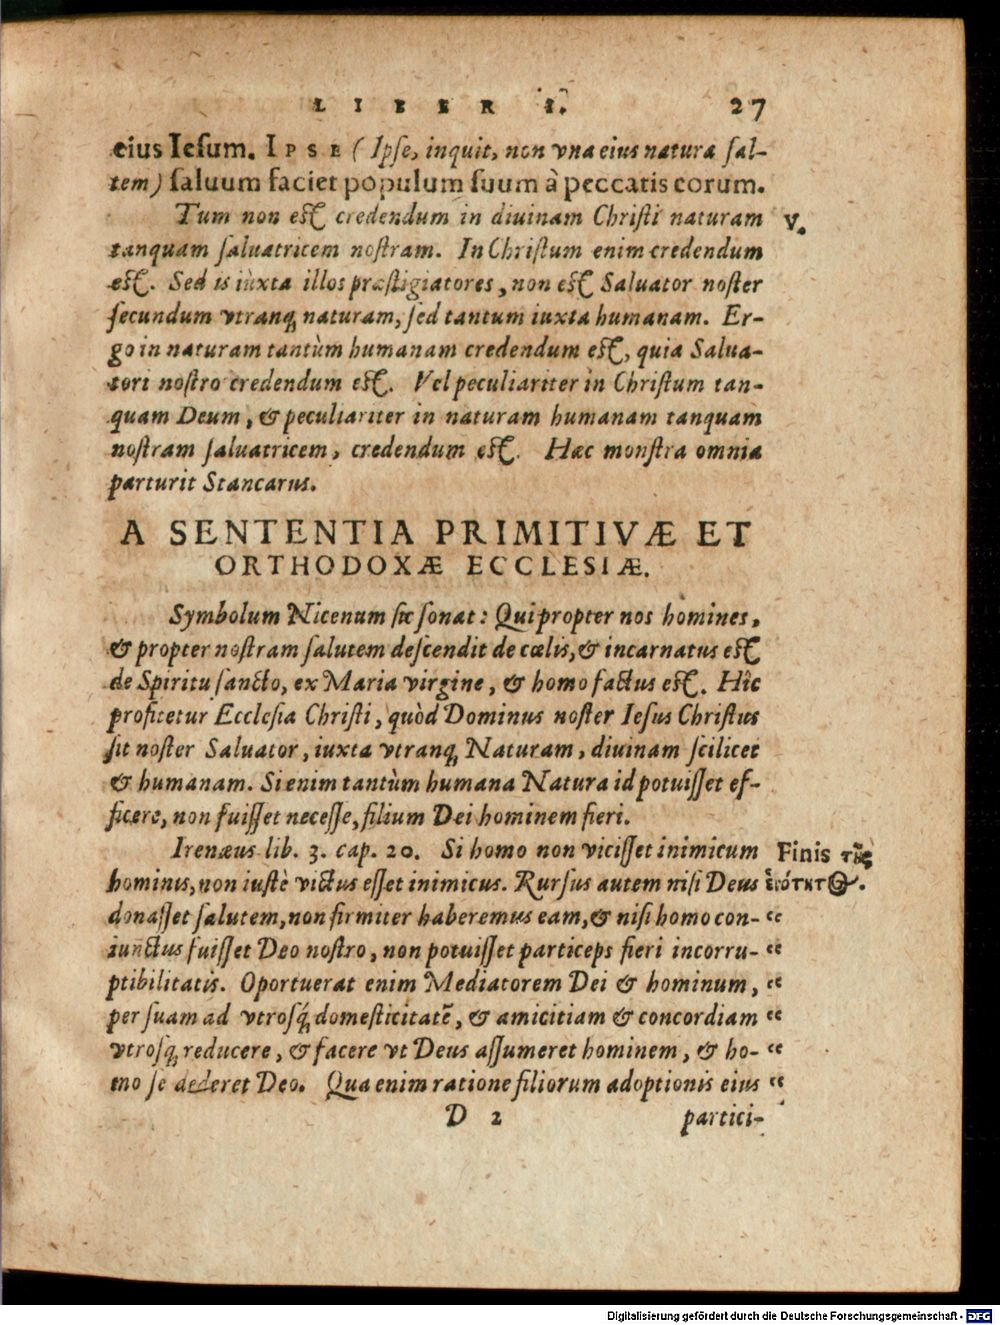 LIBER I. 27
eius Iesum. IPSE (Ipse, inquit, non vna eius natura sal-
tem) saluum faciet populum suum à peccatis eorum.
Tum non est credendum in diuinam Christi naturam V.
tanquam saluatricem nostram. In Christum enim credendum
est. Sed is iuxta illos præstigiatores, non est Saluator noster
secundum vtranq; naturam, sed tantum iuxta humanam. Er-
go in naturam tantùm humanam credendum est, quia Salua-
tori nostro credendum est. Vel peculiariter in Christum tan-
quam Deum, & peculiariter in naturam humanam tanquam
nostram saluatricem, credendum est. Hæc monstra omnia
parturit Stancarus.
A SENTENTIA PRIMITIVÆ ET
ORTHODOXÆ ECCLESIÆ.
Symbolum Nicenum sic sonat: Qui propter nos homines,
& propter nostram salutem descendit de cœlis, & incarnatus est
de Spiritu sancto, ex Maria virgine, & homo factus est. Hîc
profitetur Ecclesia Christi, quòd Dominus noster Iesus Christus
sit noster Saluator, iuxta vtranq; Naturam, diuinam scilicet
& humanam. Si enim tantùm humana Natura id potuisset ef-
ficere, non fuisset necesse, filium Dei hominem fieri.
Irenæus lib. 3. cap. 20. Si homo non vicisset inimicum Finis τῆς
hominis, non iustè victus esset inimicus. Rursus autem nisi Deus ἑνότητος.
donasset salutem, non firmiter haberemus eam, & nisi homo con- “
iunctus fuisset Deo nostro, non potuisset particeps fieri incorru- “
ptibilitatis. Oportuerat enim Mediatorem Dei & hominum, “
per suam ad vtrosq; domesticitatē, & amicitiam & concordiam “
vtrosq; reducere, & facere vt Deus assumeret hominem, & ho- “
mo se dederet Deo. Qua enim ratione filiorum adoptionis eius “
D 2 partici-
Digitalisierung gefördert durch die Deutsche Forschungsgemeinschaft - DFG